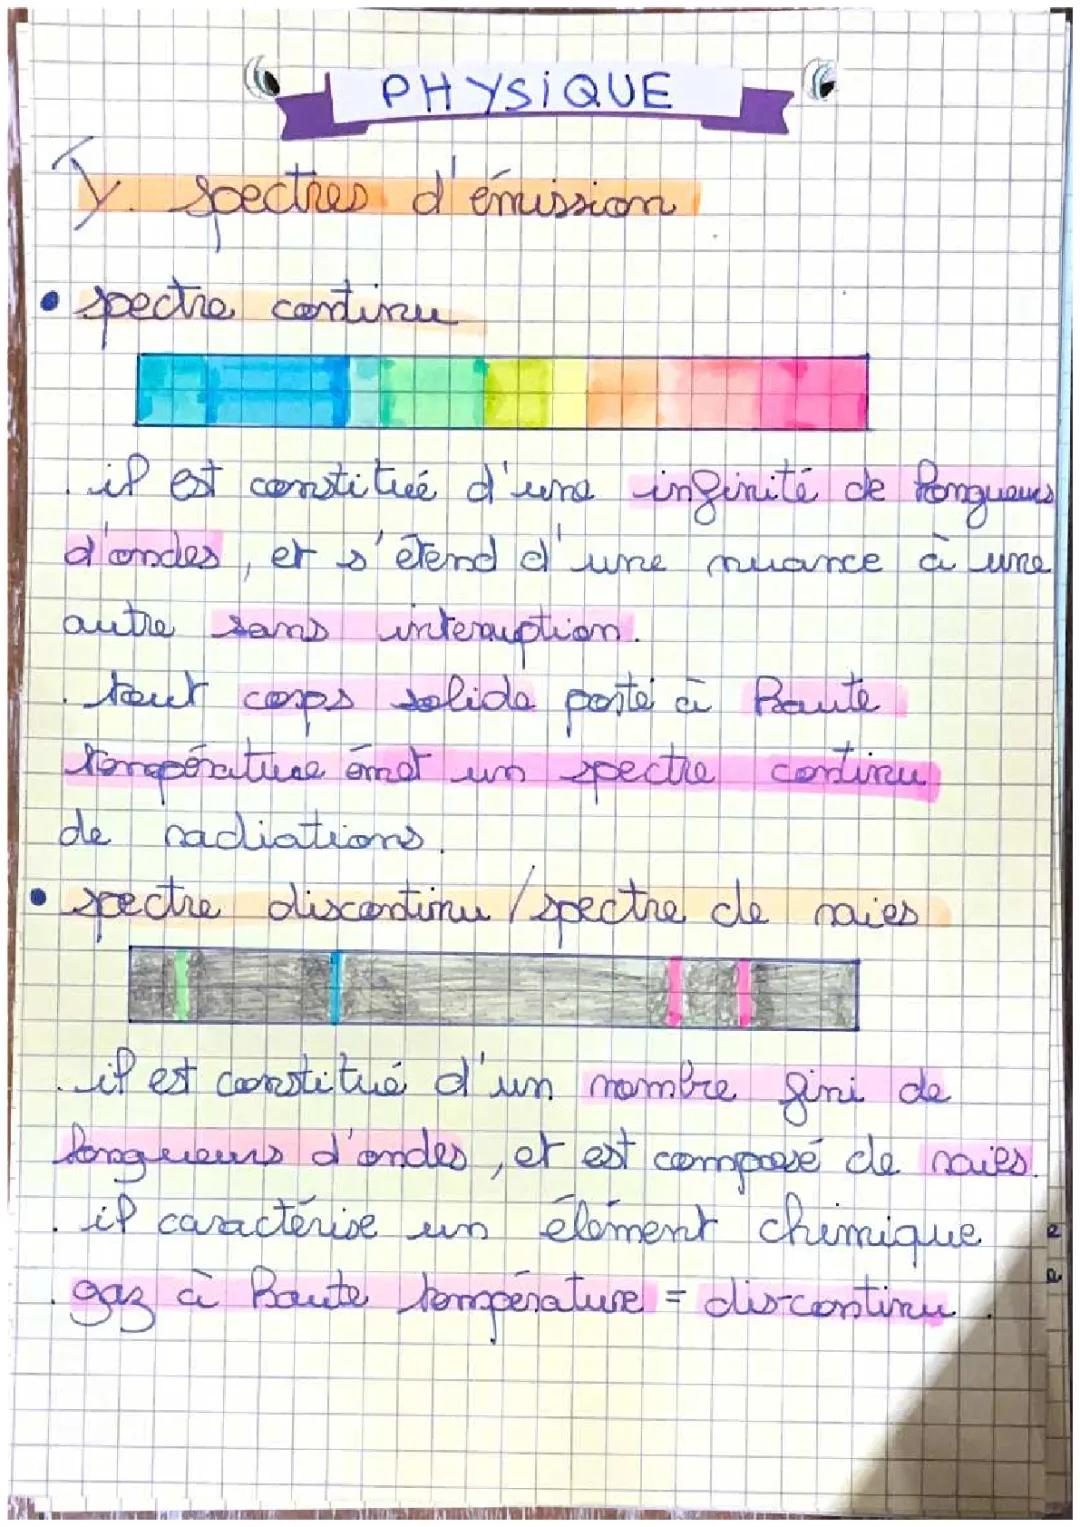 PHYSiQUE
I. spectres d'émission
• spectre continu
. il est constitué d'une infinité de longueurs
d'ondes, et s'étend d'une nuance à une
autre sans interruption.
. tout corps solide porté à haute
température émet un spectre continu
de radiations.
• spectre discontinu / spectre de raies
. il est constitué d'un nombre fini de
longueurs d'ondes, et est composé de raies.
. il caractérise un élément chimique
. gaz à haute température = discontinu.